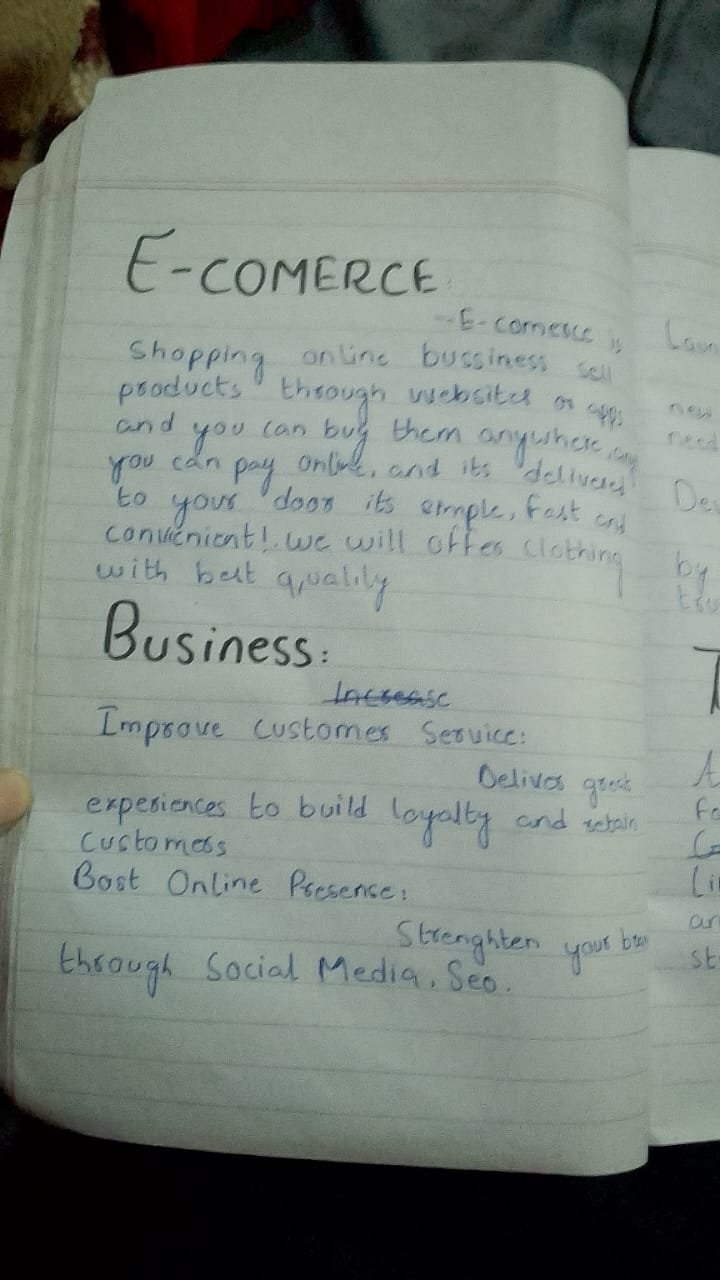 E-COMERCE
-E-comerce is
Shopping online bussiness sell
products through websites or apps
and you can buy them anywhere, any
you can pay online, and its delivered
to your door its simple, fast and
convenient!. we will offer clothing
with best quality
Business:
Increase
Improve Customer Service:
Deliver great
experiences to build loyalty and retain
Customers
Bost Online Presense:
Strenghten your
through Social Media, Seo.
new
need
by